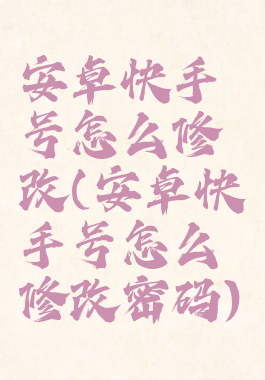 安卓快手
号怎么修
改(安卓快
手号怎么
修改密码)